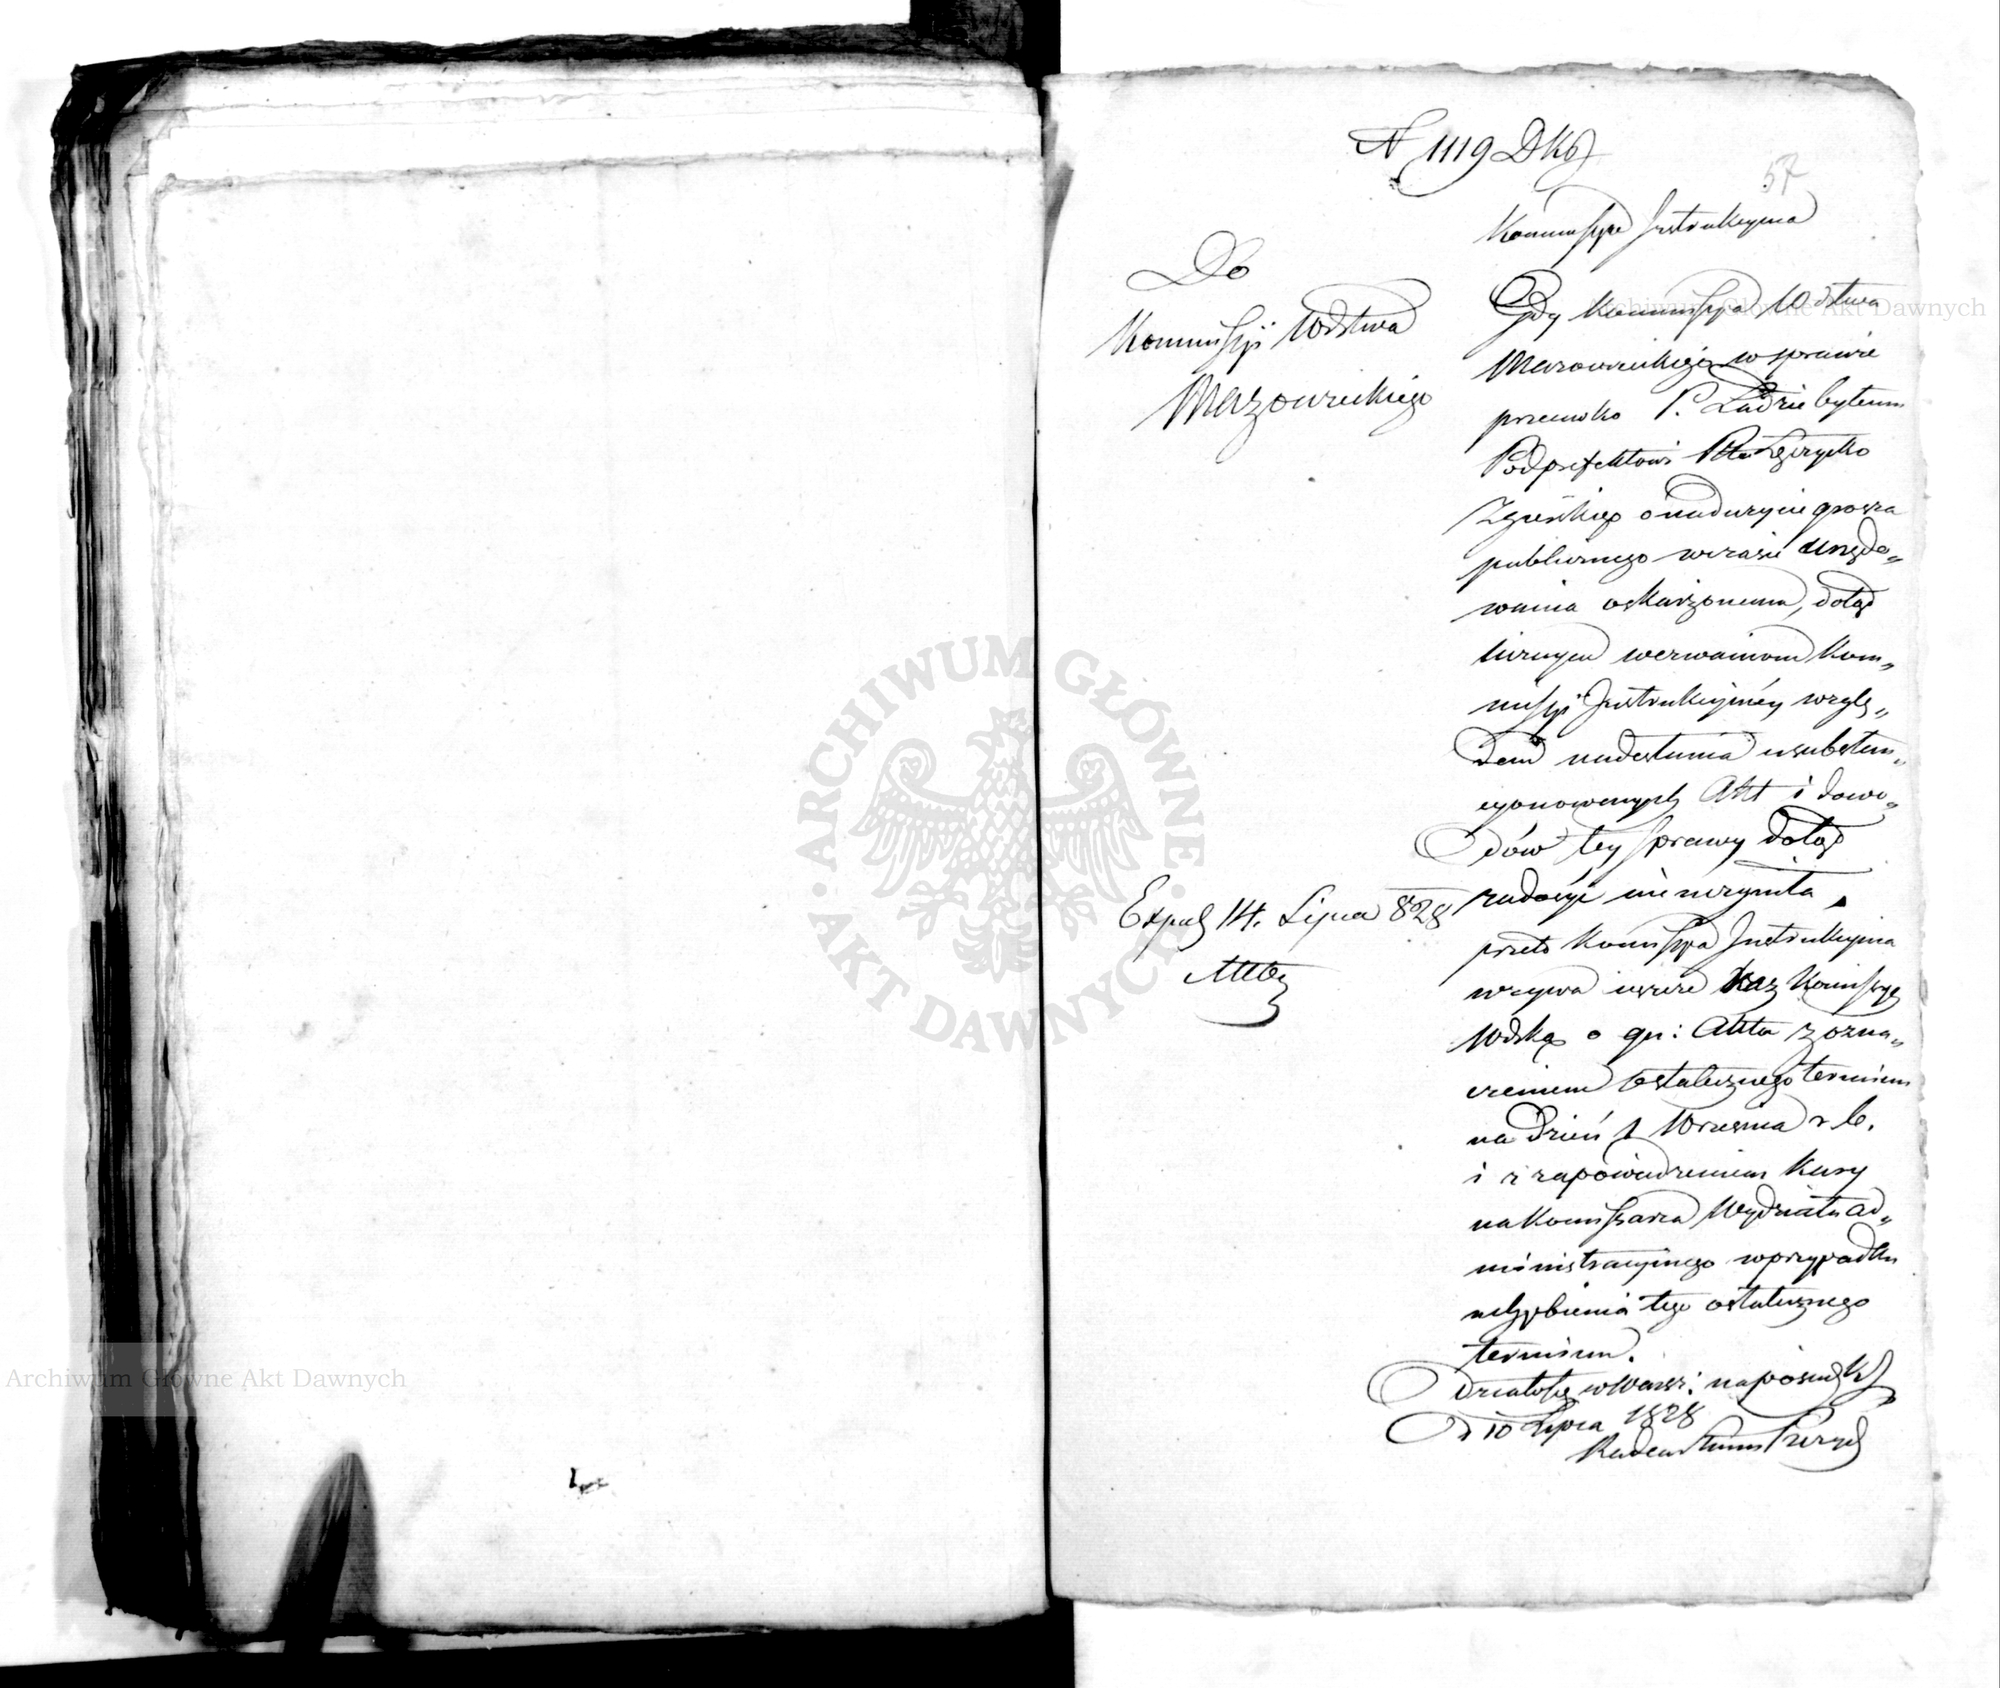 N 1119 DKG
57
Kommissya Instrukcyina
Do
Kommissyi Wdztwa
Mazowieckiego
Gdy Kommissya Wdztwa
Mazowieckiego w sprawie
przeciwko P. Zadzie byłemu
Podprefektowi Ptu Łęczycko
Zgierskiego o nadużycie grosza
publicznego w czasie urzędo„
wania oskarżonemu, dotąd
licznym wezwaniom Kom„
missyi Instrukcyiney wzglę„
dem nadesłania usubstan„
cyonowanych Akt i dowo„
dów tey sprawy dotąd
zadosyć nie uczyniła,
przeto Kommissya Instrukcyina
wzywa ieszcze raz Kommissyę
Wdzką o gn: Akta z ozna„
czeniem ostatecznego terminu
na dzień 1 Września r. b.
i z zapowiedzeniem kary
na Kommissarza Wydziału ad„
ministracyinego w przypadku
uchybienia tego ostatecznego
terminu.
Działo się w Warsz: na posiedz
D 10 Lipca 1828
Exped 14. Lipca 828
Archiwum Główne Akt Dawnych
Archiwum Główne Akt Dawnych
ARCHIWUM GŁÓWNE AKT DAWNYCH